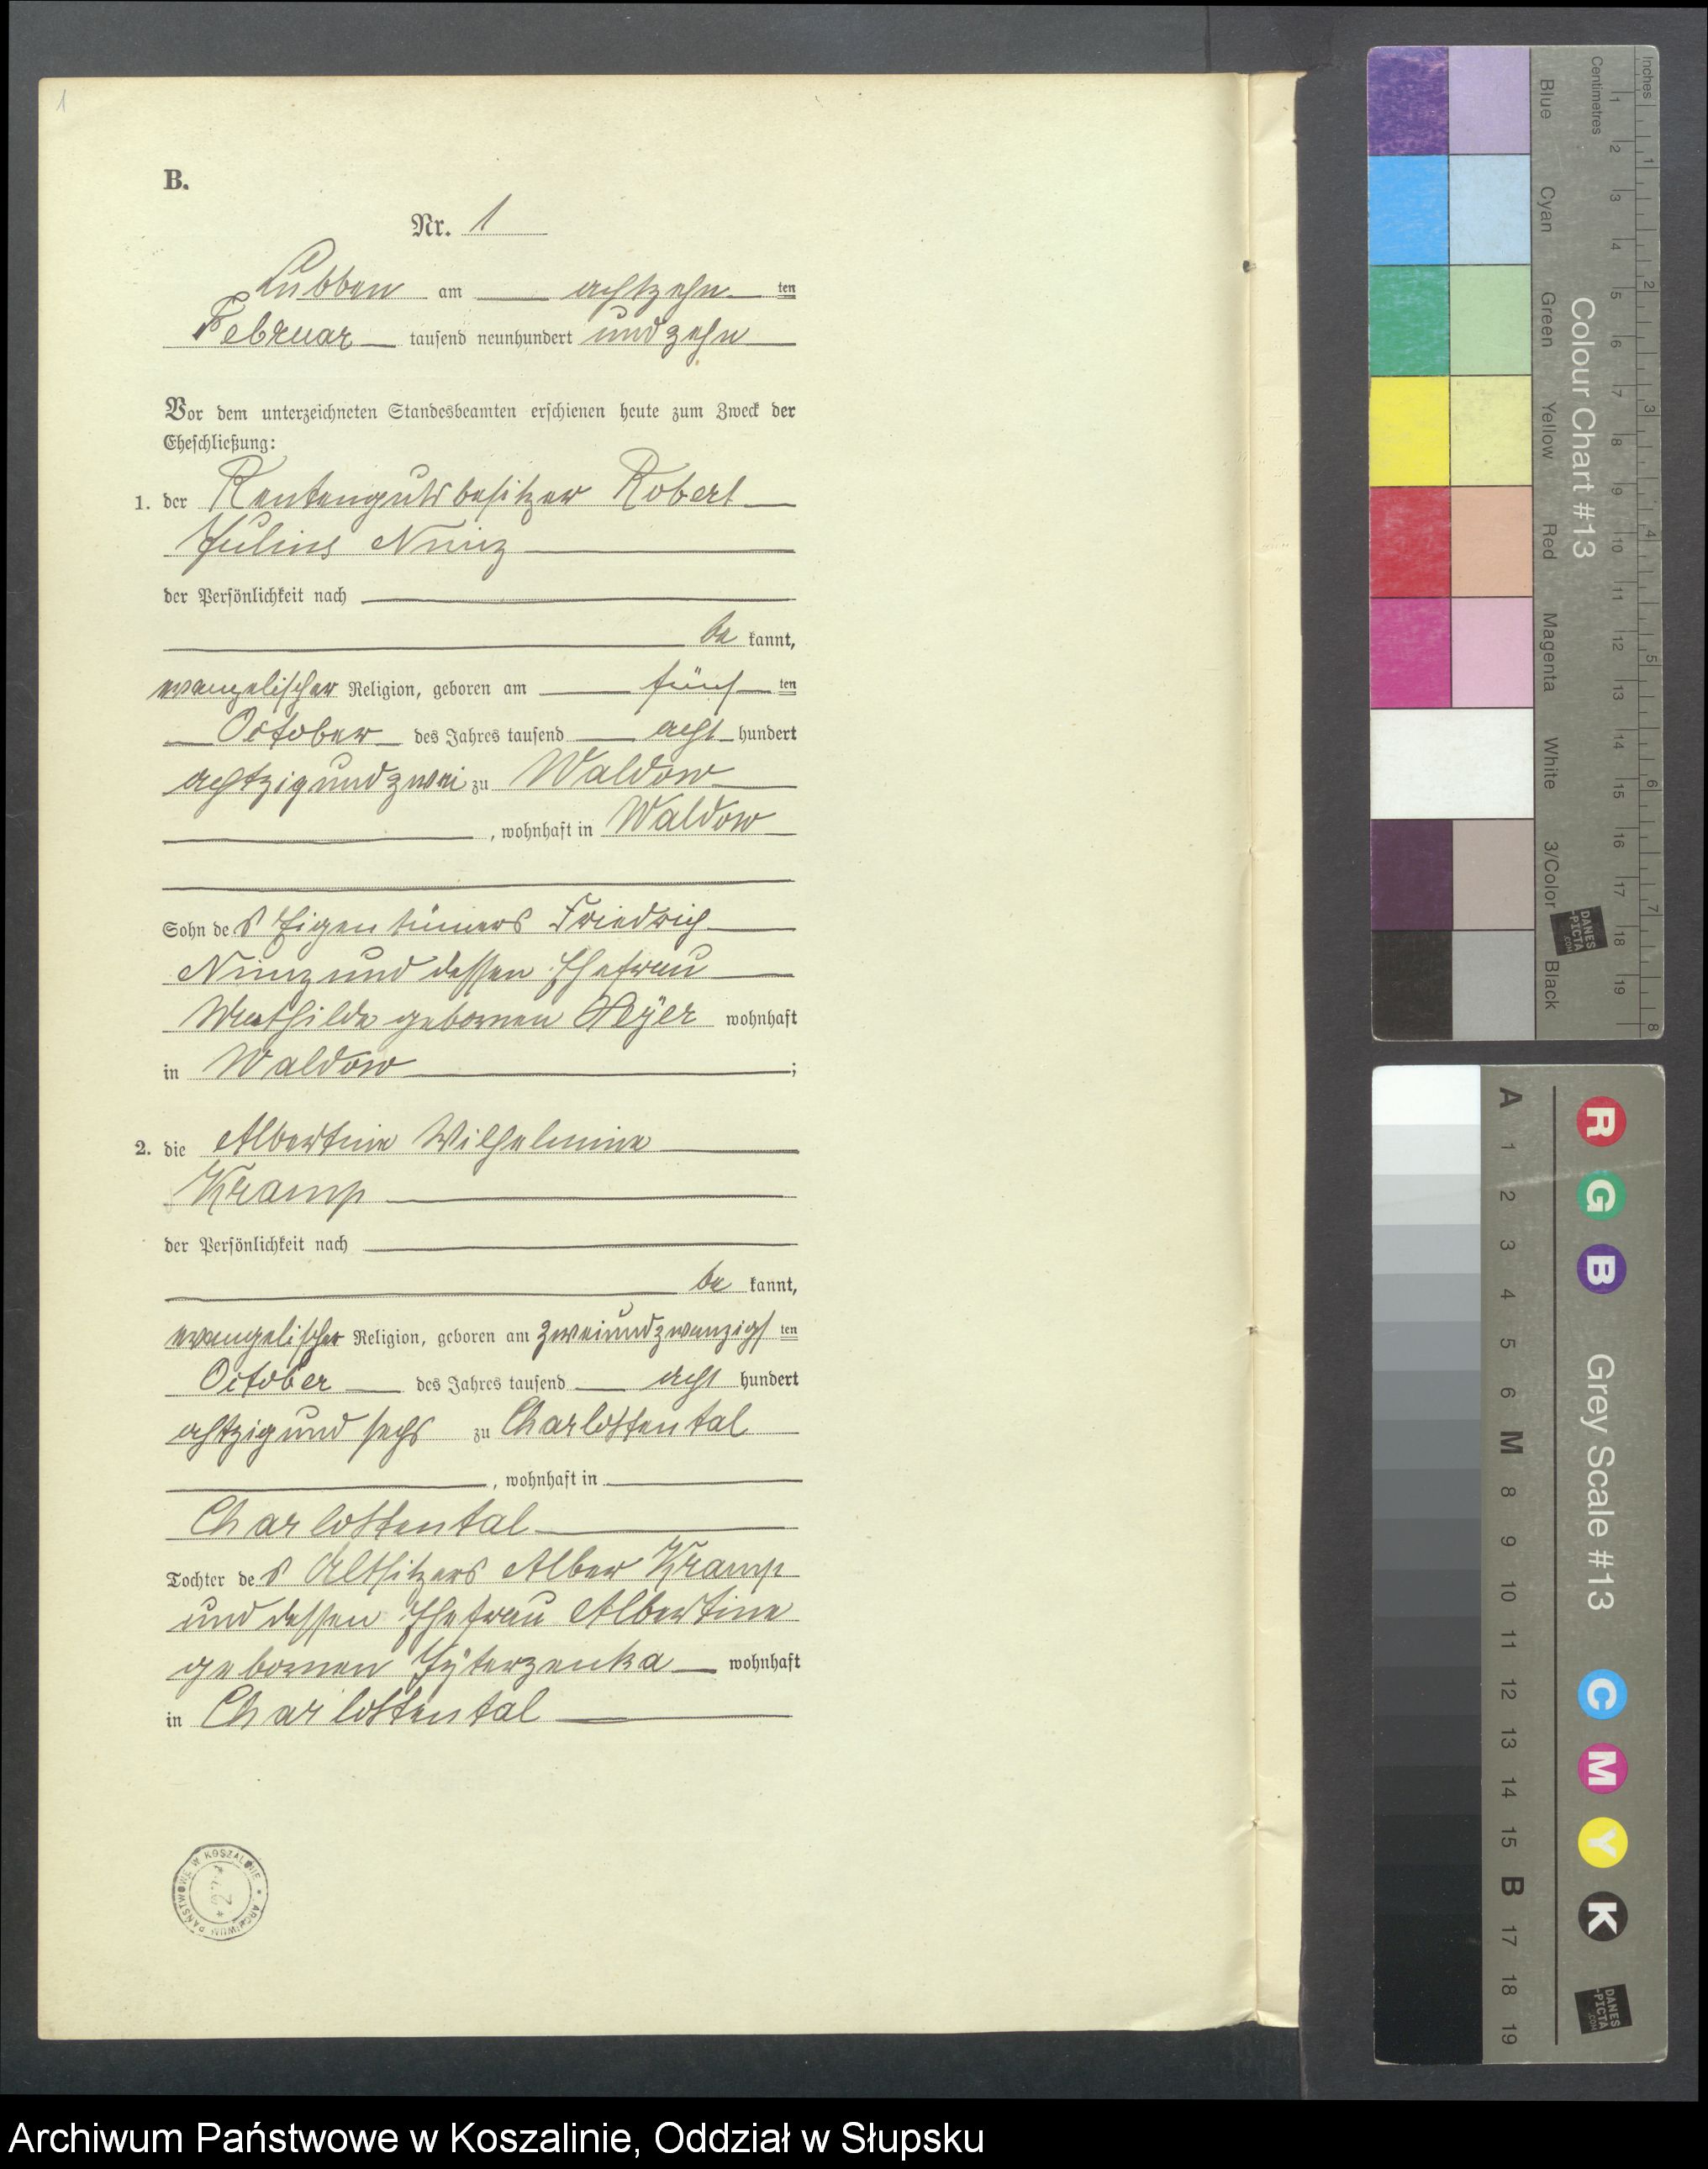 1
B.
Nr. 1
Lübben am achtzehn ten
Februar tausend neunhundert und zehn
Vor dem unterzeichneten Standesbeamten erschienen heute zum Zweck der
Eheschließung:
1. der Rentengutsbesitzer Robert
Julius
der Persönlichkeit nach
be kannt,
evangelischer Religion, geboren am fünf ten
October des Jahres tausend acht hundert
achtzig und zwei zu Waldow
, wohnhaft in Waldow
Sohn des Eigentümers Friedrich
und dessen Ehefrau
Mathilde gebornen Heyer wohnhaft
in Waldow ;
2. die Albertine Wilhelmine
Kramp
der Persönlichkeit nach
be kannt,
evangelischer Religion, geboren am zweiundzwanzigs ten
October des Jahres tausend acht hundert
achtzig und sechs zu Charlottental
, wohnhaft in
Charlottental
Tochter des Altsitzers Kramp
und dessen Ehefrau Albertine
gebornen wohnhaft
in Charlottental
ARCHIWUM PAŃSTWOWE W KOSZALINIE
Inches
Centimetres
1 2 3 4 5 6 7 8 9 10 11 12 13 14 15 16 17 18 19
1 2 3 4 5 6 7 8
Colour Chart #13
Blue
Cyan
Green
Yellow
Red
Magenta
White
3/Color
Black
DANES
-PICTA
.COM
A 1 2 3 4 5 6 M 8 9 10 11 12 13 14 15 B 17 18 19
R G B
Grey Scale #13
C M Y K
DANES
-PICTA
.COM
Archiwum Państwowe w Koszalinie, Oddział w Słupsku